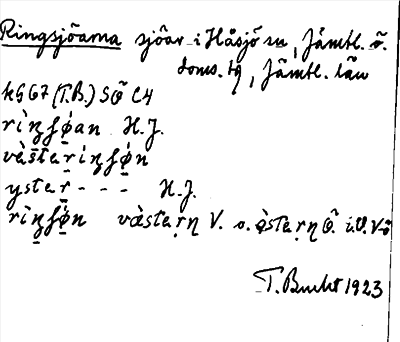 Ringsjöarna sjöar i Håsjö sn, Jämtl. ö.
doms. tg, Jämtl. län
kG 67 (T.B.) SÖ C4
rìŋʃǿan H.J.
vèsterìŋʃǿn
yster - - - H.J.
rìŋʃǿn vàsterŋ V. o. òsterŋ Ö. i. V.
T. Bucht 1923